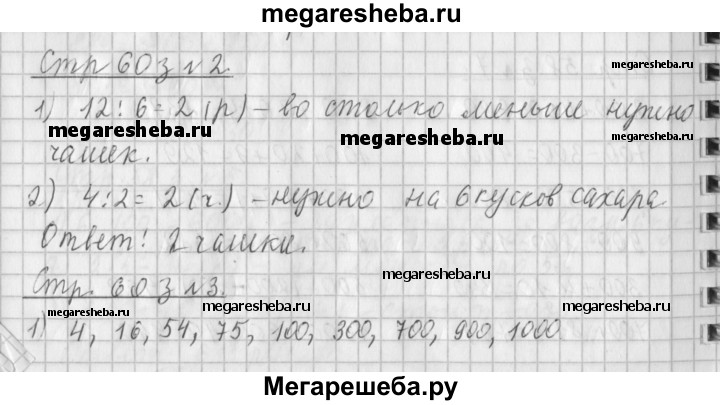 megaresheba.ru
Стр 60 з № 2.
megaresheba.ru
1) 12 : 6 = 2 (р) – во столько меньше нужно
megaresheba.ru
megaresheba.ru
чашек.
2) 4 : 2 = 2 (ч.) – нужно на 6 кусков сахара
Ответ! 2 чашки.
megaresheba.ru
Стр. 60 з № 3. –
megaresheba.ru
megaresheba.ru
megaresheba.ru
1) 4, 16, 54, 75, 100, 300, 700, 900, 1000
megaresheba.ru
megaresheba.ru
Мегарешеба.ру